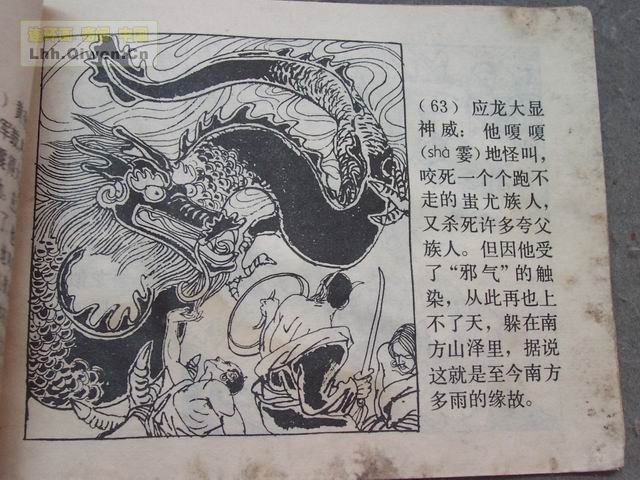 连环画·东南·中国
Lhh.Qiwen.Cn
(63) 应龙大显
神威：他嗄嗄
(shà 霎)地怪叫，
咬死一个个跑不
走的蚩尤族人，
又杀死许多夸父
族人。但因他受
了“邪气”的触
染，从此再也上
不了天，躲在南
方山泽里，据说
这就是至今南方
多雨的缘故。